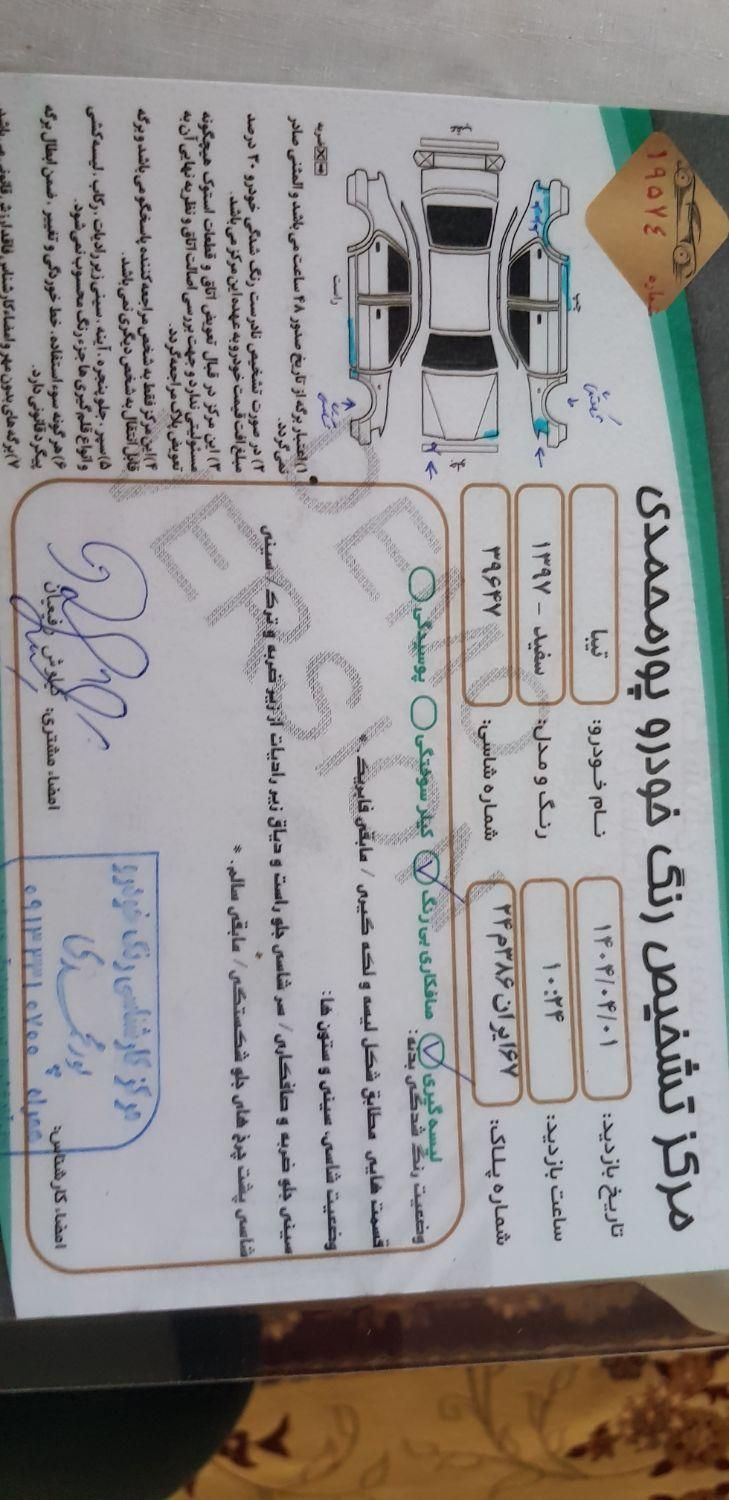 مرکز تشخیص رنگ خودرو پورمحمدی
شماره
۱۹۵۷۴
تاریخ بازدید: ۱۴۰۴/۰۴/۰۱
نام خودرو: تیبا
ساعت بازدید: ۱۰:۲۴
رنگ و مدل: سفید - ۱۳۹۷
شماره پلاک: ۶۷ایران ۳۸۶م۲۴
شماره شاسی: ۳۹۶۴۷
لیسه گیری صافکاری بی رنگ کیلر سوختگی پوسیدگی
وضعیت رنگ شدگی بدنه:
قسمت هایی مطابق شکل لیسه و لکه گیری / مابقی فابریک. *
وضعیت شاسی، سینی و ستون ها:
سینی جلو ضربه و صافکاری / سر شاسی جلو راست و دیاق زیر رادیات از زیر ضربه و ترک / سینی
شاسی پشت چرخ های جلو شکستگی / مابقی سالم. *
امضاء کارشناس:
امضاء مشتری: کیاوش رفیعیان
مرکز کارشناسی رنگ خودرو
پورمحمدی
همراه ۰۹۱۳۳۳۱۰۷۰۰
چپ
راست
ضربه
۱) اعتبار برگه از تاریخ صدور ۴۸ ساعت می باشد و المثنی صادر
نمی گردد.
۲) در صورت تشخیص نادرست رنگ شدگی خودرو ۳۰ درصد
مبلغ افت قیمت خودرو به عهده این مرکز می باشد.
۳) این مرکز در قبال تعویض اتاق و قطعات استوک هیچگونه
مسئولیتی ندارد و جهت بررسی اصالت اتاق و نظریه نهایی آن به
تعویض پلاک مراجعه گردد.
۴) این مرکز فقط به شخص مراجعه کننده پاسخگو می باشد و برگه
قابل انتقال به شخص دیگری نمی باشد.
۵) سپر، جلو پنجره، آینه، سینی زیر رادیات، رکاب، لیسه کشی
و انواع قلم گیری ها جزء رنگ محسوب نمی شود.
۶) هر گونه سوء استفاده، خط خوردگی و تغییر، ضمن ابطال برگه
پیگرد قانونی دارد.
۷) برگه های بدون مهر و امضاء کارشناس فاقد ارزش قانونی می باشد.
DEMO
VERSION